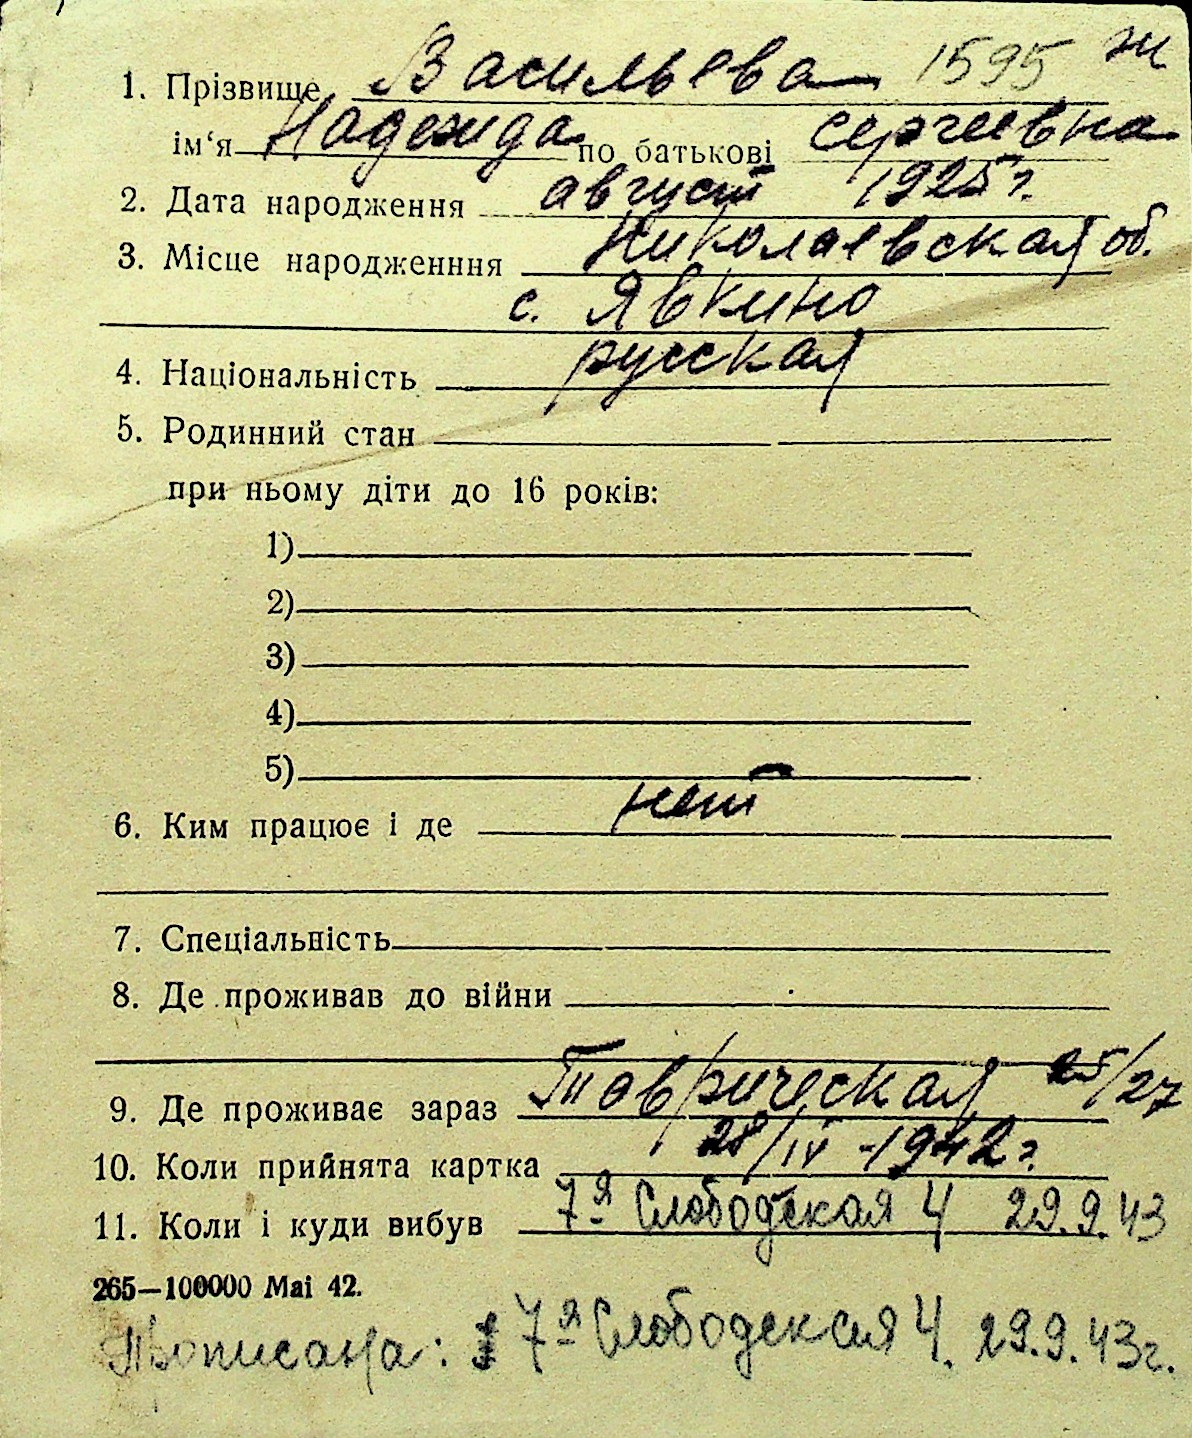 1. Прізвище Васильева 1595 ж
ім‘я Надежда по батькові Сергеевна
2. Дата народження август 1925 г.
3. Місце народженння Николаевская об.
с. Явкино
4. Національність русская
5. Родинний стан
при ньому діти до 16 років:
1)
2)
3)
4)
5)
6. Ким працює і де нет
7. Спеціальність
8. Де проживав до війни
9. Де проживає зараз Таврическая 25/27
10. Коли прийнята картка 28/IV -1942 г.
11. Коли і куди вибув 7я Слободская 4 29.9.43
265—100000 Mai 42.
Прописана: 7я Слободская 4. 29.9.43г.